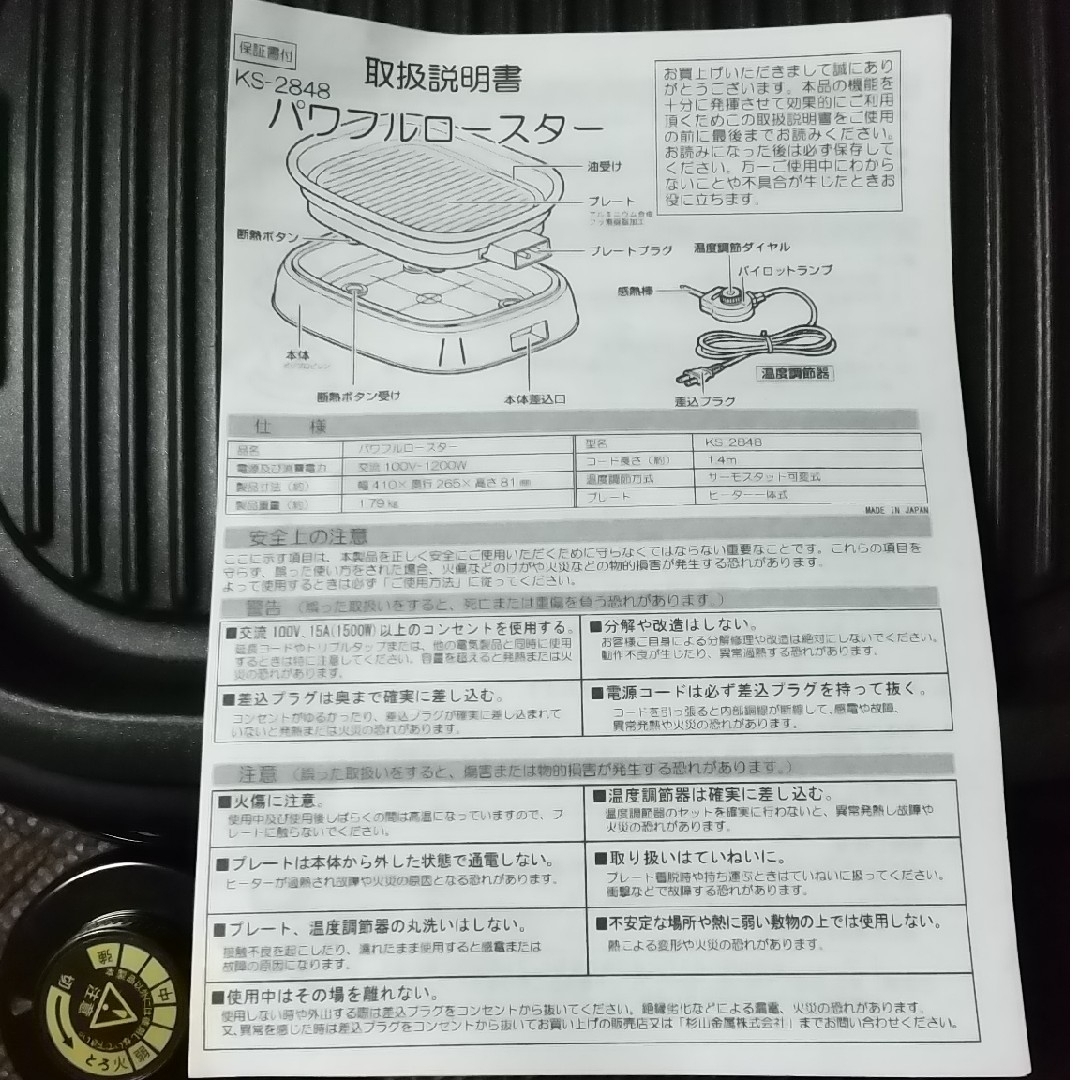 保証書付
KS-2848
取扱説明書
パワフルロースター
お買上げいただきまして誠にあり
がとうございます。本品の機能を
十分に発揮させて効果的にご利用
頂くためこの取扱説明書をご使用
の前に最後までお読みください。
お読みになった後は必ず保存して
ください。万一ご使用中にわから
ないことや不具合が生じたときお
役に立ちます。
油受け
プレート
アルミニウム合金
フッ素樹脂加工
断熱ボタン
プレートプラグ
温度調節ダイヤル
パイロットランプ
感熱棒
本体
断熱ボタン受け
本体差込口
差込プラグ
温度調節器
仕 様
品名 パワフルロースター 型名 KS-2848
電源及び消費電力 交流100V-1200W コード長さ(約) 1.4m
製品寸法(約) 幅410×奥行265×高さ81㎜ 温度調節方式 サーモスタット可変式
製品重量(約) 1.79㎏ プレート ヒーター一体式
MADE IN JAPAN
安全上の注意
ここに示す項目は、本製品を正しく安全にご使用いただくために守らなくてはならない重要なことです。これらの項目を
守らず、誤った使い方をされた場合、火傷などのけがや火災などの物的損害が発生する恐れがあります。
よって使用するときは必ず「ご使用方法」に従ってください。
警告(誤った取扱いをすると、死亡または重傷を負う恐れがあります。)
■交流100V、15A(1500W)以上のコンセントを使用する。
延長コードやトリプルタップまたは、他の電気製品と同時に使用
するときは特に注意してください。容量を超えると発熱または火
災の恐れがあります。
■分解や改造はしない。
お客様ご自身による分解修理や改造は絶対にしないでください。
動作不良が生じたり、異常過熱する恐れがあります。
■差込プラグは奥まで確実に差し込む。
コンセントがゆるかったり、差込プラグが確実に差し込まれて
いないと発熱または火災の恐れがあります。
■電源コードは必ず差込プラグを持って抜く。
コードを引っ張ると内部銅線が断線して、感電や故障、
異常発熱や火災の恐れがあります。
注意(誤った取扱いをすると、傷害または物的損害が発生する恐れがあります。)
■火傷に注意。
使用中及び使用後しばらくの間は高温になっていますので、プ
レートに触らないでください。
■温度調節器は確実に差し込む。
温度調節器のセットを確実に行わないと、異常発熱し故障や
火災の恐れがあります。
■プレートは本体から外した状態で通電しない。
ヒーターが過熱され故障や火災の原因となる恐れがあります。
■取り扱いはていねいに。
プレート着脱時や持ち運ぶときはていねいに扱ってください。
衝撃などで故障する恐れがあります。
■プレート、温度調節器の丸洗いはしない。
接触不良を起こしたり、濡れたまま使用すると感電または
故障の原因になります。
■不安定な場所や熱に弱い敷物の上では使用しない。
熱による変形や火災の恐れがあります。
■使用中はその場を離れない。
使用しない時や外出する際は差込プラグをコンセントから抜いてください。絶縁劣化などによる漏電、火災の恐れがあります。
又、異常を感じた時は差込プラグをコンセントから抜いてお買い上げの販売店又は「杉山金属株式会社」までお問い合わせください。
切
強
中
弱
とろ火
注意